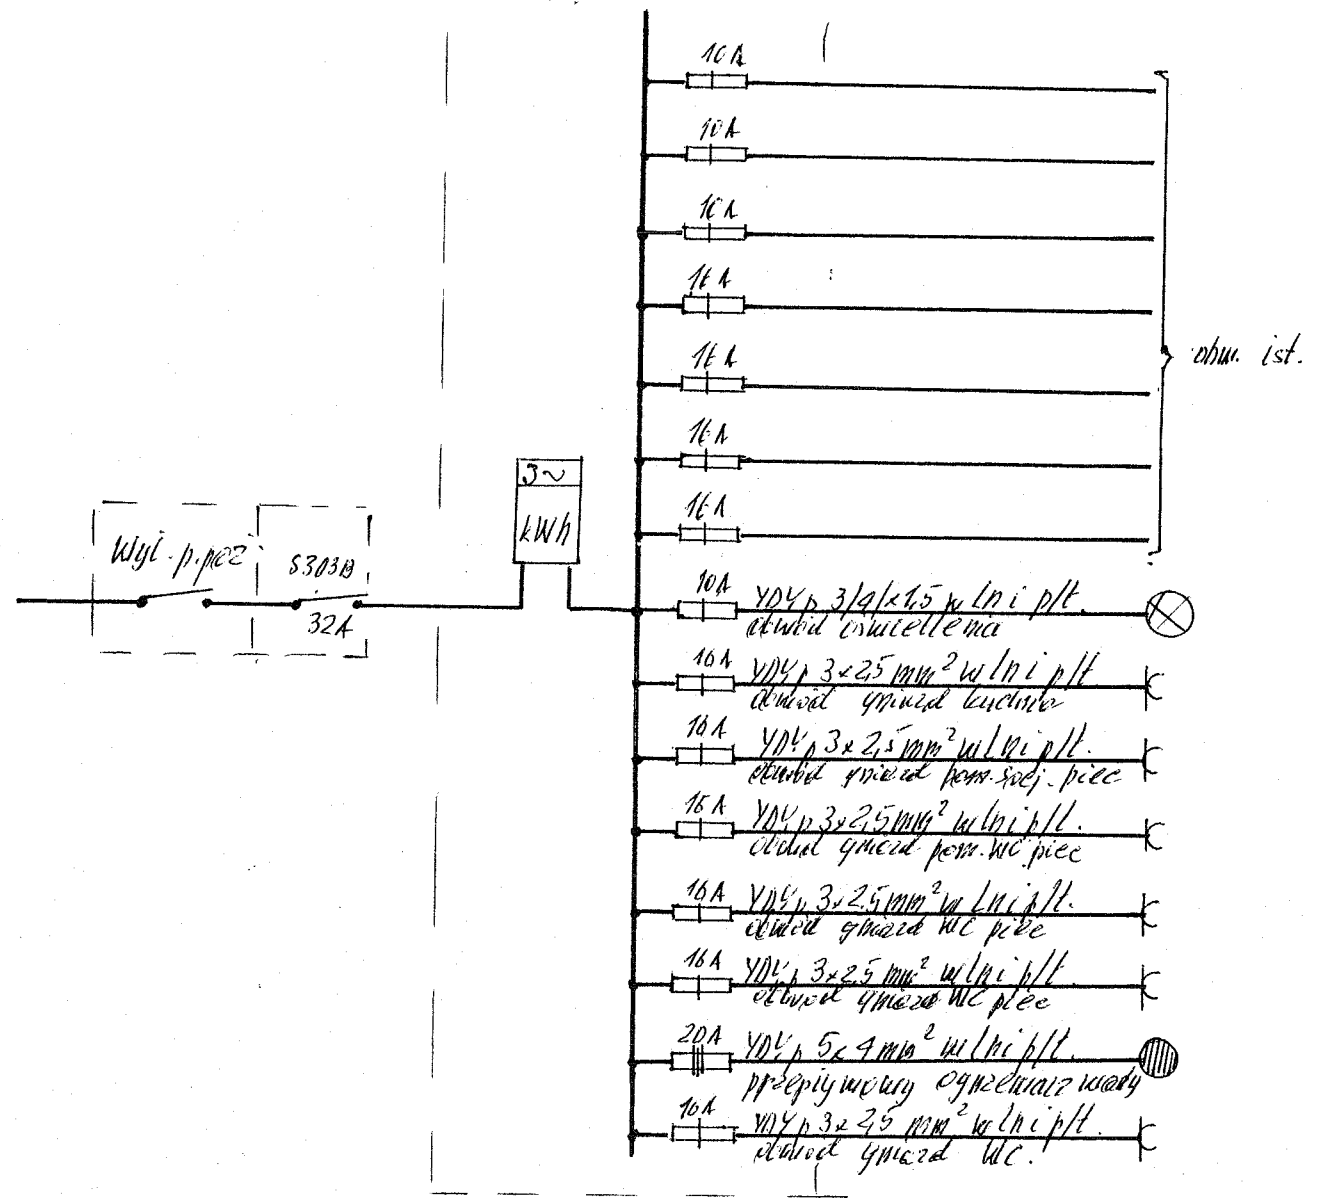 10A
10A
10A
16A
16A
16A
16A
obw. ist.
3~
kWh
Wył. p.poż
S303B
32A
10A YDYp 3/4/x1,5 w ln i p/t.
obwód oświetlenia
16A YDYp 3x2,5 mm² w ln i p/t
obwód gniazd kuchnia
16A YDYp 3x2,5 mm² w ln i p/t.
obwód gniazd pom. soc. piec
16A YDYp 3x2,5 mm² w ln i p/t.
obwód gniazd pom. WC piec
16A YDYp 3x2,5 mm² w ln i p/t.
obwód gniazd WC piec
16A YDYp 3x2,5 mm² w ln i p/t.
obwód gniazd WC piec
20A YDYp 5x4 mm² w ln i p/t.
przepływowy ogrzewacz wody
16A YDYp 3x2,5 mm² w ln i p/t.
obwód gniazd WC.